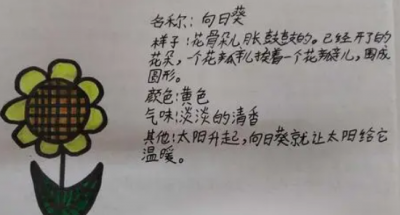 名称：向日葵
样子：花骨朵儿胀鼓鼓的。已经开了的
花朵，一个花瓣儿挨着一个花瓣儿，围成
圆形。
颜色：黄色
气味：淡淡的清香
其他：太阳升起，向日葵就让太阳给它
温暖。